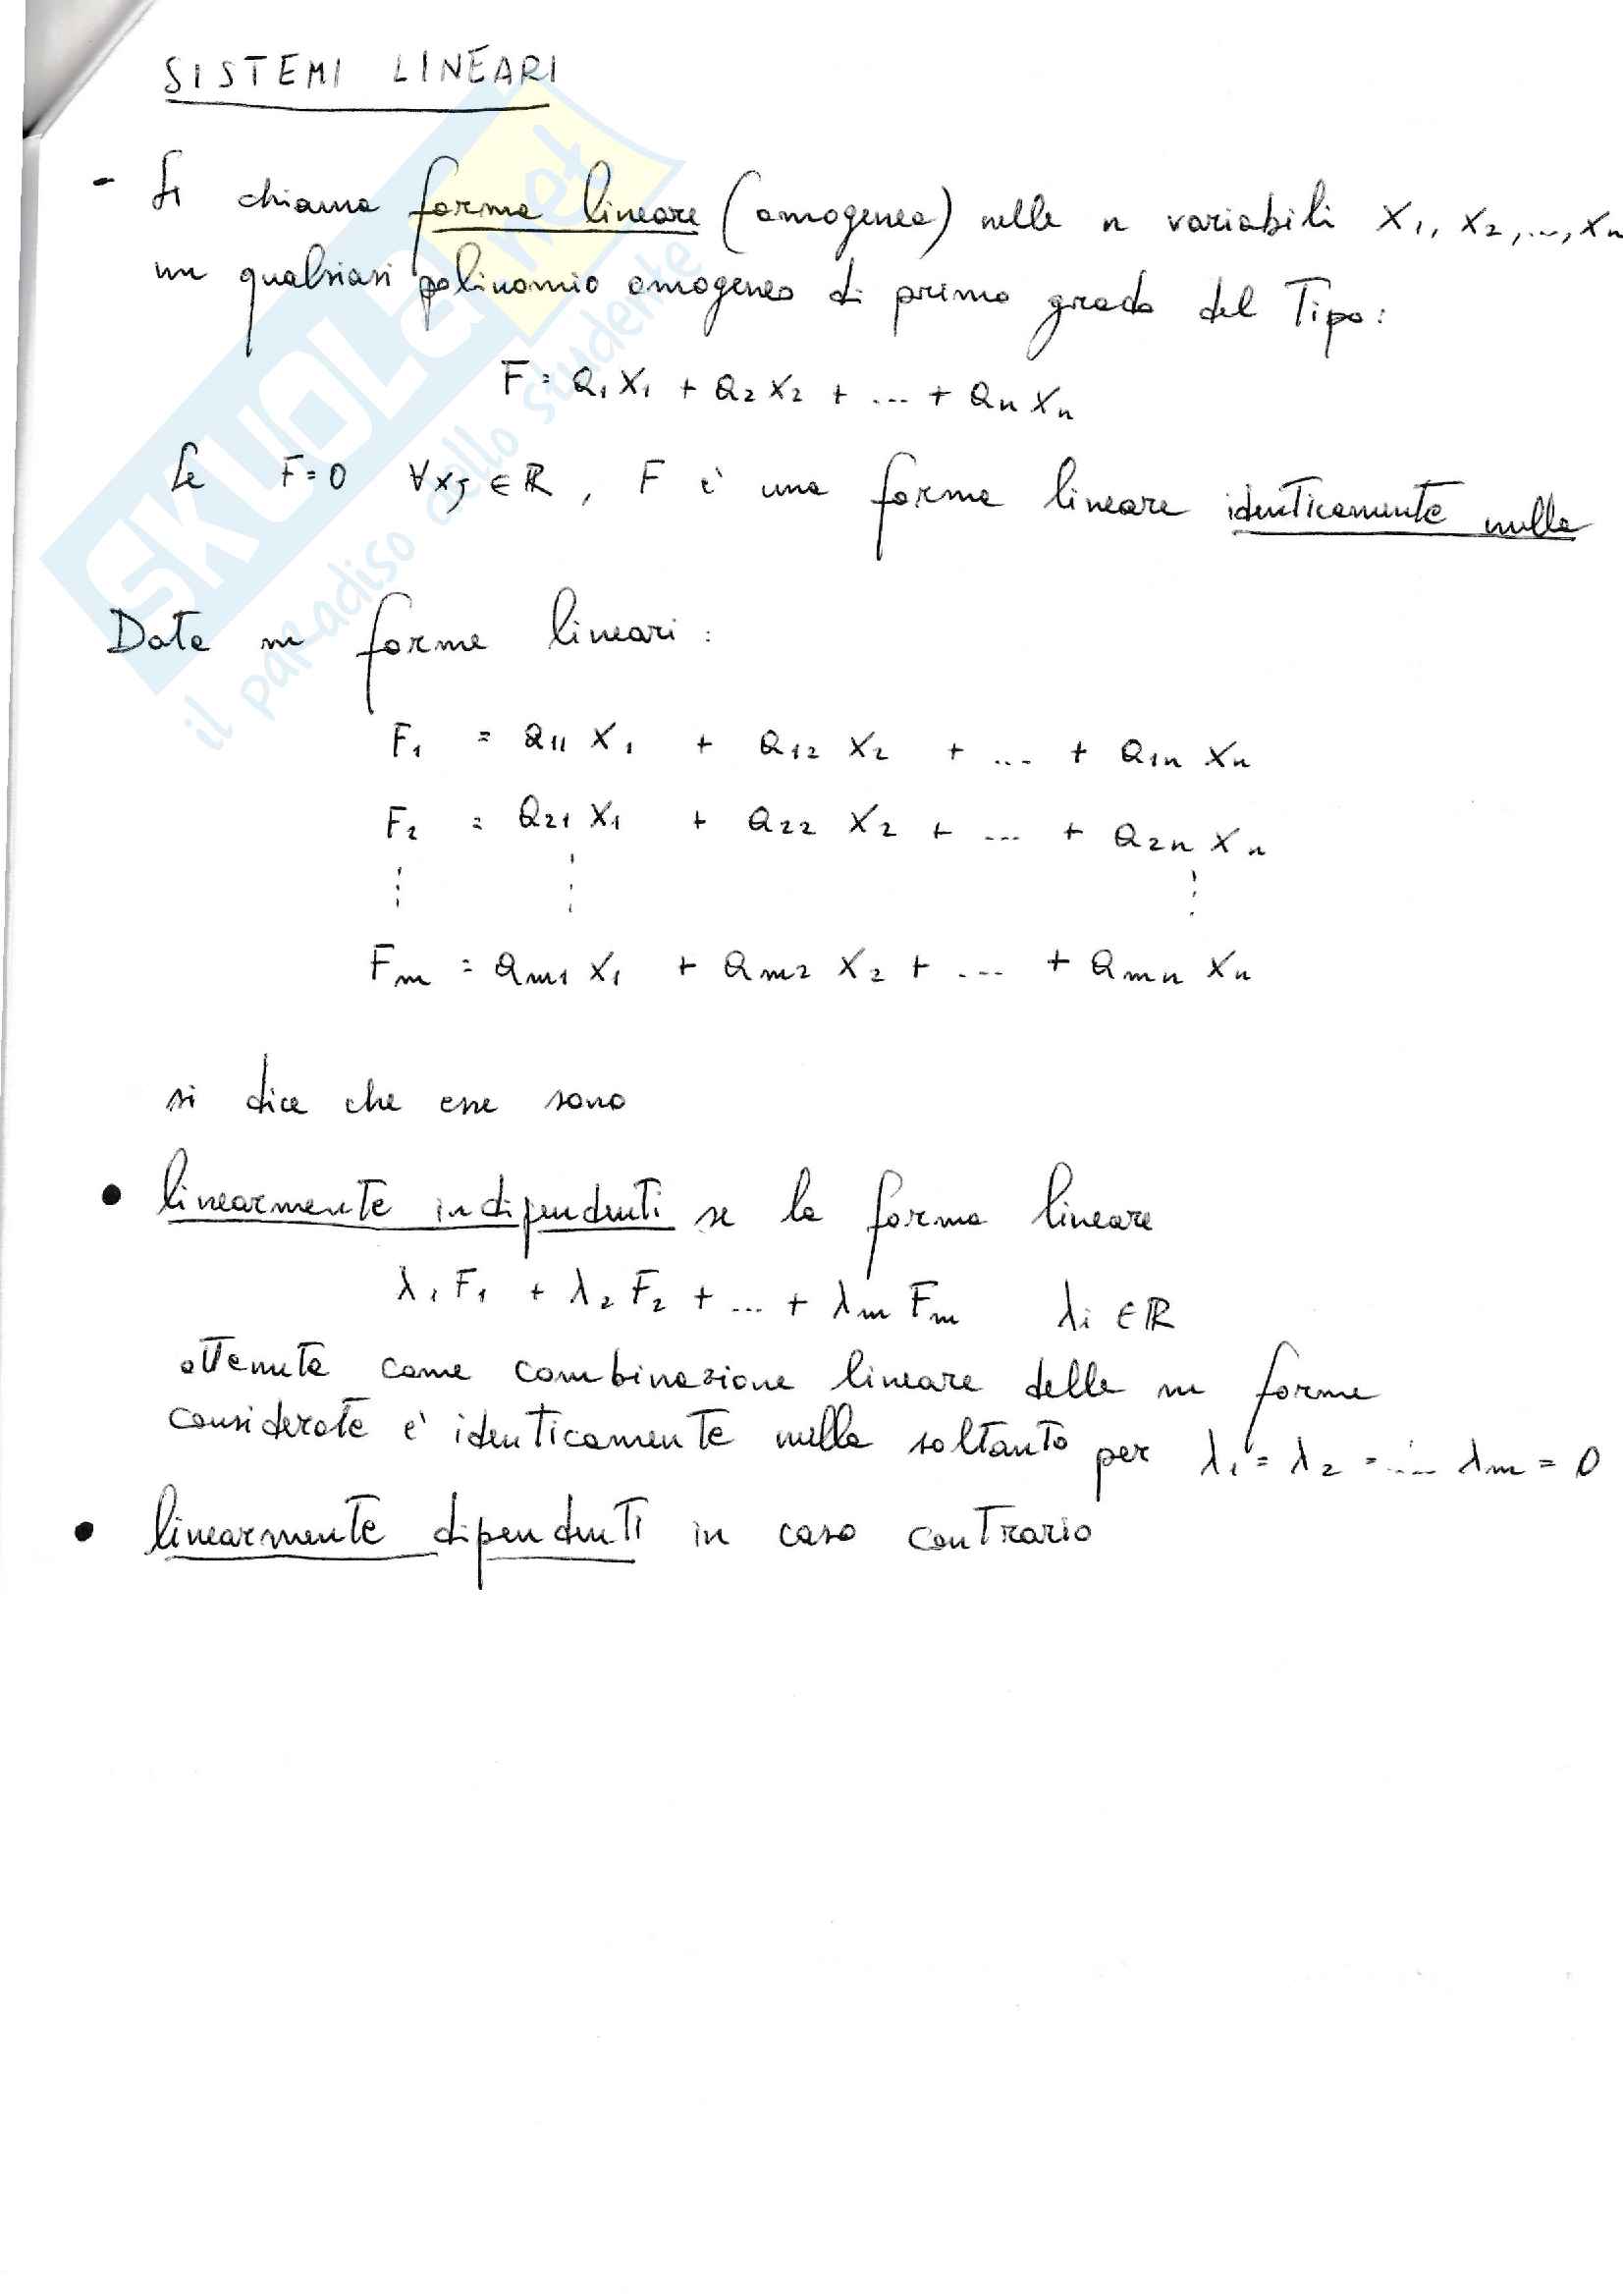 SISTEMI LINEARI
- Si chiama forma lineare (omogenea) nelle n variabili x1, x2, ..., xn
un qualsiasi polinomio omogeneo di primo grado del Tipo:
F = a1 x1 + a2 x2 + ... + an xn
Se F=0 ∀xj ∈ ℝ, F è una forma lineare identicamente nulla
Date m forme lineari:
F1 = a11 x1 + a12 x2 + ... + a1n xn
F2 = a21 x1 + a22 x2 + ... + a2n xn
⋮ ⋮ ⋮
Fm = am1 x1 + am2 x2 + ... + amn xn
si dice che esse sono
• linearmente indipendenti se la forma lineare
λ1 F1 + λ2 F2 + ... + λm Fm λi ∈ ℝ
ottenuta come combinazione lineare delle m forme
considerate è identicamente nulla soltanto per λ1 = λ2 = ... λm = 0
• linearmente dipendenti in caso contrario
SKUOLA.net
il paradiso dello studente